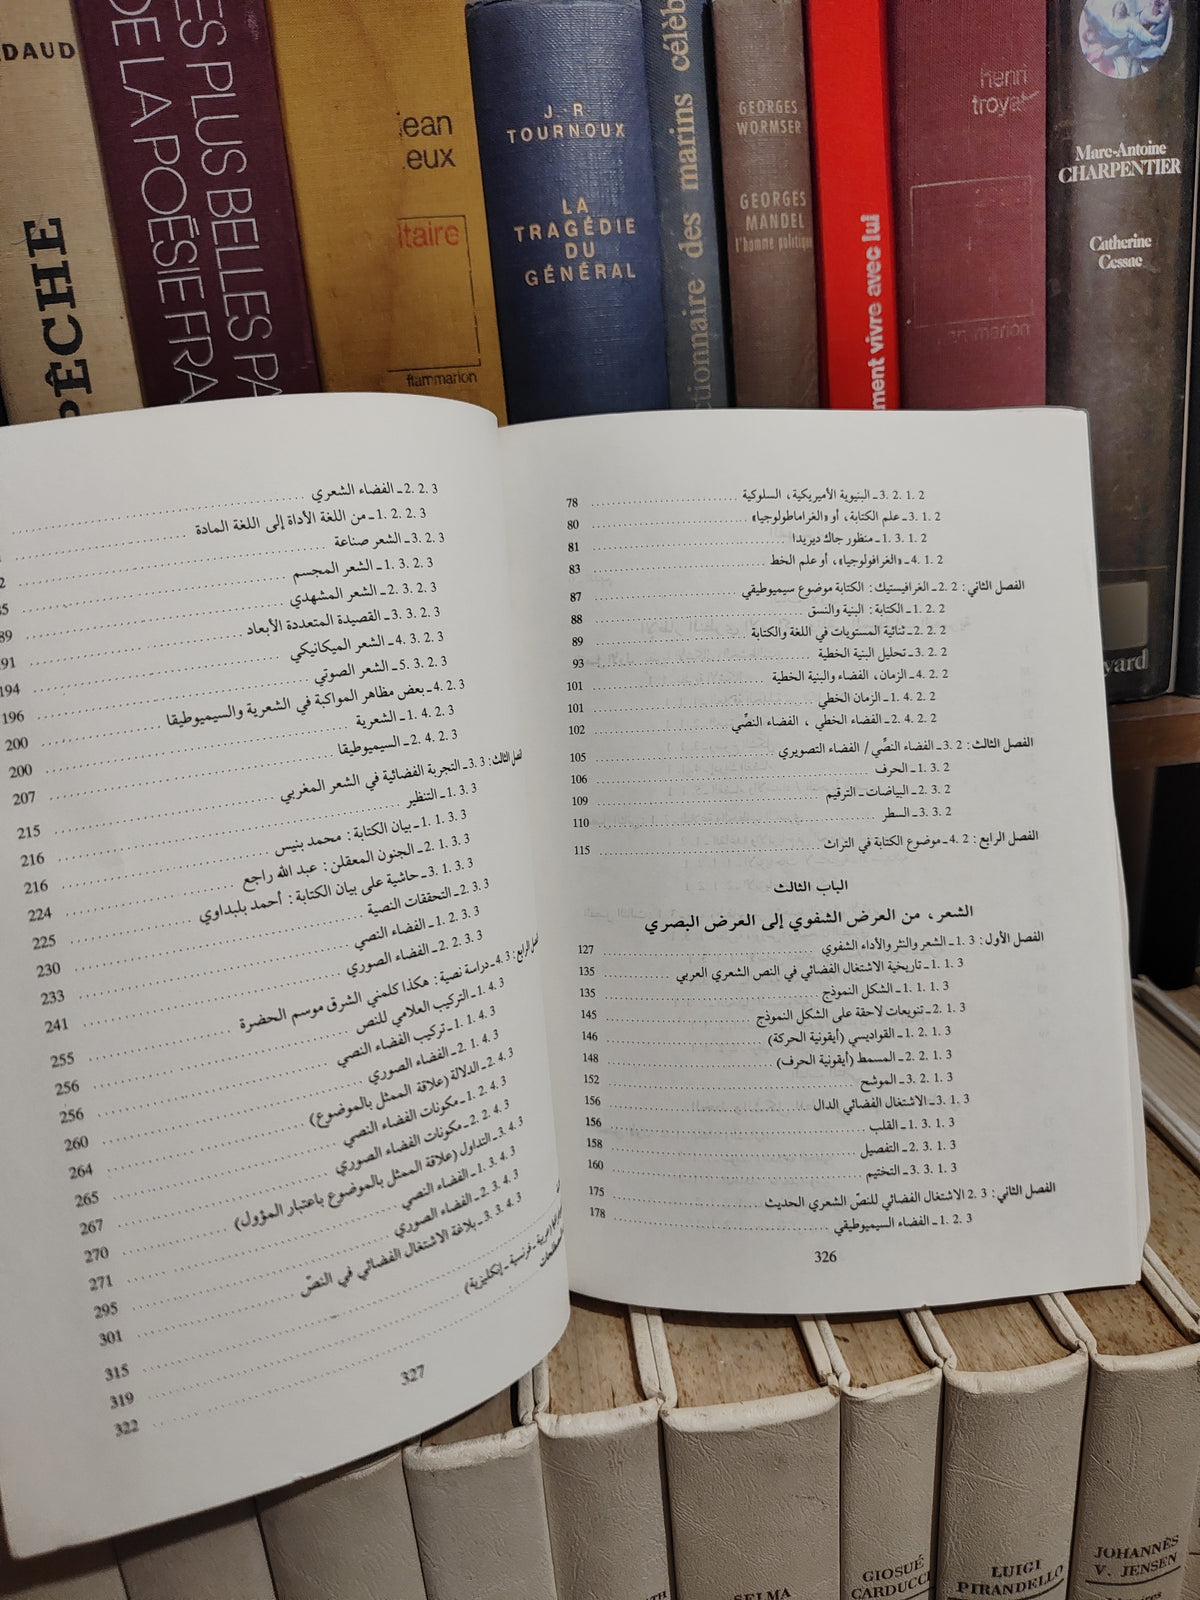 DAUD
PÊCHE
ES PLUS BELLES PA
DE LA POÉSIE FRA
jean
eux
itaire
flammarion
J.-R.
TOURNOUX
LA
TRAGÉDIE
DU
GÉNÉRAL
ctionnaire des marins célèb
GEORGES
WORMSER
GEORGES
MANDEL
l'homme politique
ment vivre avec lui
henri
troyat
Marc-Antoine
CHARPENTIER
Catherine
Cessac
yard
3.2.1.2ـ البنيوية الأميريكية، السلوكية 78
3.1.2ـ علم الكتابة، أو «الغراماطولوجيا» 80
1.3.1.2ـ منظور جاك ديريدا 81
4.1.2ـ «الغرافولوجيا»، أو علم الخط 83
الفصل الثاني: 2.2ـ الغرافيستيك: الكتابة موضوع سيميوطيقي 87
1.2.2ـ الكتابة: البنية والنسق 88
2.2.2ـ ثنائية المستويات في اللغة والكتابة 89
3.2.2ـ تحليل البنية الخطية 93
4.2.2ـ الزمان، الفضاء والبنية الخطية 101
1.4.2.2ـ الزمان الخطي 101
2.4.2.2ـ الفضاء الخطي، الفضاء النصِّي 102
الفصل الثالث: 3.2ـ الفضاء النصِّي/ الفضاء التصويري 105
1.3.2ـ الحرف 106
2.3.2ـ البياضات ـ الترقيم 109
3.3.2ـ السطر 110
الفصل الرابع: 4.2ـ موضوع الكتابة في التراث 115
الباب الثالث
الشعر، من العرض الشفوي إلى العرض البصري
الفصل الأول: 1.3ـ الشعر والنثر والأداء الشفوي 127
1.1.3ـ تاريخية الاشتغال الفضائي في النص الشعري العربي 135
1.1.1.3ـ الشكل النموذج 135
2.1.3ـ تنويعات لاحقة على الشكل النموذج 145
1.2.1.3ـ القواديسي (أيقونية الحركة) 146
2.2.1.3ـ المسمط (أيقونية الحرف) 148
3.2.1.3ـ الموشح 152
3.1.3ـ الاشتغال الفضائي الدال 156
1.3.1.3ـ القلب 156
2.3.1.3ـ التفصيل 158
3.3.1.3ـ التختيم 160
الفصل الثاني: 2.3 الاشتغال الفضائي للنصّ الشعري الحديث 175
1.2.3ـ الفضاء السيميوطيقي 178
326
2.2.3ـ الفضاء الشعري
1.2.2.3ـ من اللغة الأداة إلى اللغة المادة
3.2.3ـ الشعر صناعة
1.3.2.3ـ الشعر المجسم
2.3.2.3ـ الشعر المشهدي
3.3.2.3ـ القصيدة المتعددة الأبعاد
4.3.2.3ـ الشعر الميكانيكي 194
5.3.2.3ـ الشعر الصوتي 196
4.2.3ـ بعض مظاهر المواكبة في الشعرية والسيميوطيقا 200
1.4.2.3ـ الشعرية 200
2.4.2.3ـ السيميوطيقا 207
الفصل الثالث: 3.3ـ التجربة الفضائية في الشعر المغربي 215
1.3.3ـ التنظير 216
1.1.3.3ـ بيان الكتابة: محمد بنيس 216
2.1.3.3ـ الجنون المعقلن: عبد الله راجع 224
3.1.3.3ـ حاشية على بيان الكتابة: أحمد بلبداوي 225
2.3.3ـ التحققات النصية 230
1.2.3.3ـ الفضاء النصي 233
2.2.3.3ـ الفضاء الصوري 241
الفصل الرابع: 4.3ـ دراسة نصية: هكذا كلمني الشرق موسم الحضرة 255
1.4.3ـ التركيب العلامي للنص 256
1.1.4.3ـ تركيب الفضاء النصي 256
2.1.4.3ـ الفضاء الصوري 260
2.4.3ـ الدلالة (علاقة الممثل بالموضوع) 264
1.2.4.3ـ مكونات الفضاء النصي 265
2.2.4.3ـ مكونات الفضاء الصوري 267
3.4.3ـ التداول (علاقة الممثل بالموضوع باعتبار المؤول) 270
1.3.4.3ـ الفضاء النصي 271
2.3.4.3ـ الفضاء الصوري 295
3.3.4.3ـ بلاغة الاشتغال الفضائي في النصّ 301
315
ـ فرنسية ـ إنكليزية) 319
322
327
SELMA
GIOSUÉ
CARDUCCI
LUIGI
PIRANDELLO
JOHANNÈS
V. JENSEN